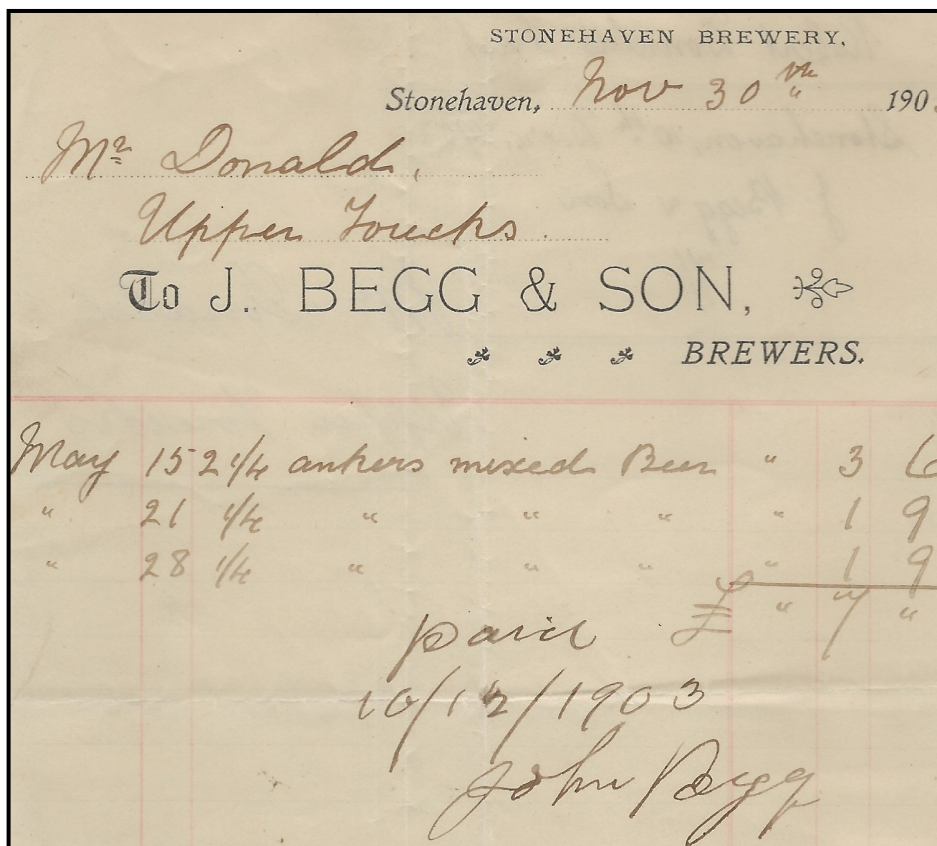 STONEHAVEN BREWERY.
Stonehaven, Nov 30th 190
Mr Donald,
Upper Toucks.
To J. BEGG & SON,
BREWERS.
May 15 2 1/4 ankers mixed Beer " 3 6
" 21 1/4 " " " " 1 9
" 28 1/4 " " " " 1 9
£ " 7 "
paid
10/12/1903
John Begg